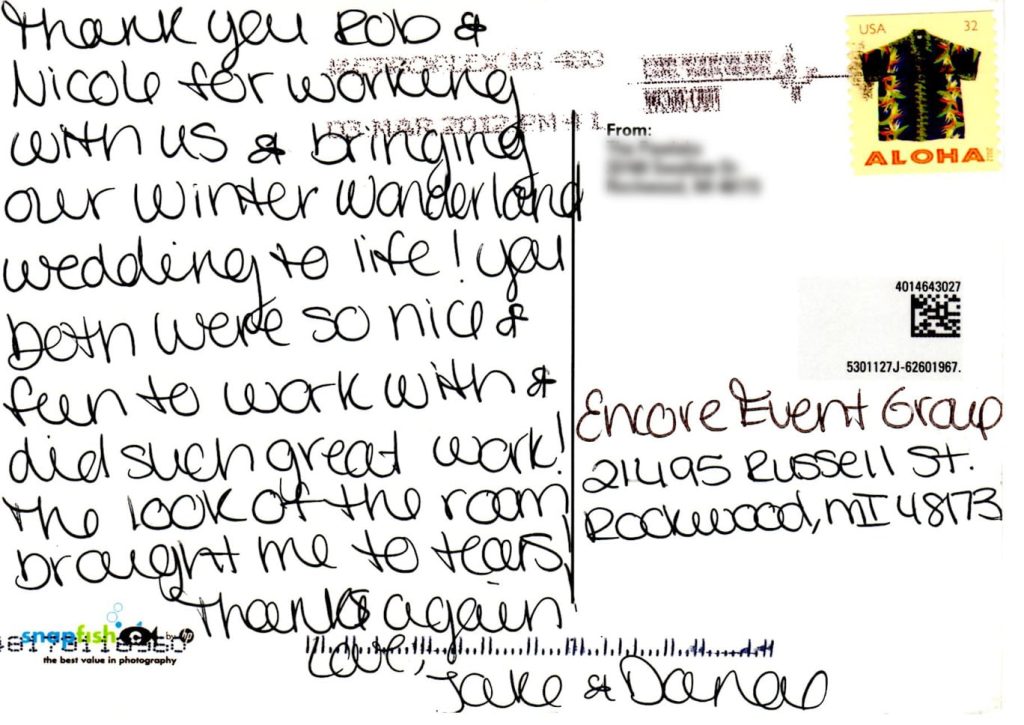 Thank you Rob &
Nicole for working
with us & bringing
our winter wonderland
wedding to life! you
both were so nice &
fun to work with &
did such great work!
the look of the room
brought me to tears!
Thanks again
Love,
Jake & Danae
USA 32
ALOHA
2012
02 MAR 2012 PM 4 L
From:
4014643027
5301127J-62601967.
Encore Event Group
21495 Russell St.
Rockwood, MI 48173
snapfish by hp
the best value in photography